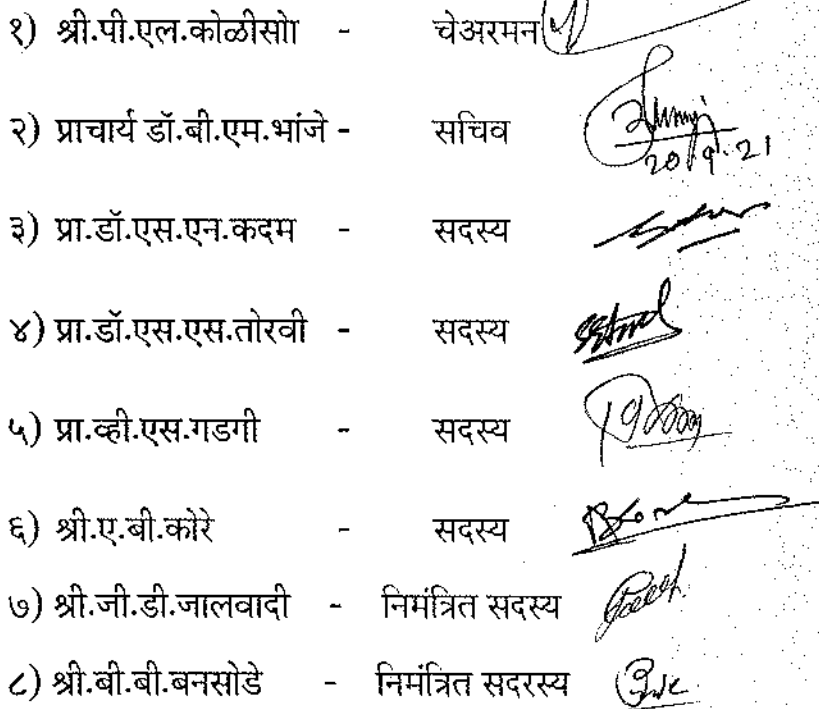 १) श्री.पी.एल.कोळीसाो - चेअरमन
२) प्राचार्य डॉ.बी.एम.भांजे - सचिव
20/9/21
३) प्रा.डॉ.एस.एन.कदम - सदस्य
४) प्रा.डॉ.एस.एस.तोरवी - सदस्य
५) प्रा.व्ही.एस.गडगी - सदस्य
६) श्री.ए.बी.कोरे - सदस्य
७) श्री.जी.डी.जालवादी - निमंत्रित सदस्य
८) श्री.बी.बी.बनसोडे - निमंत्रित सदरस्य